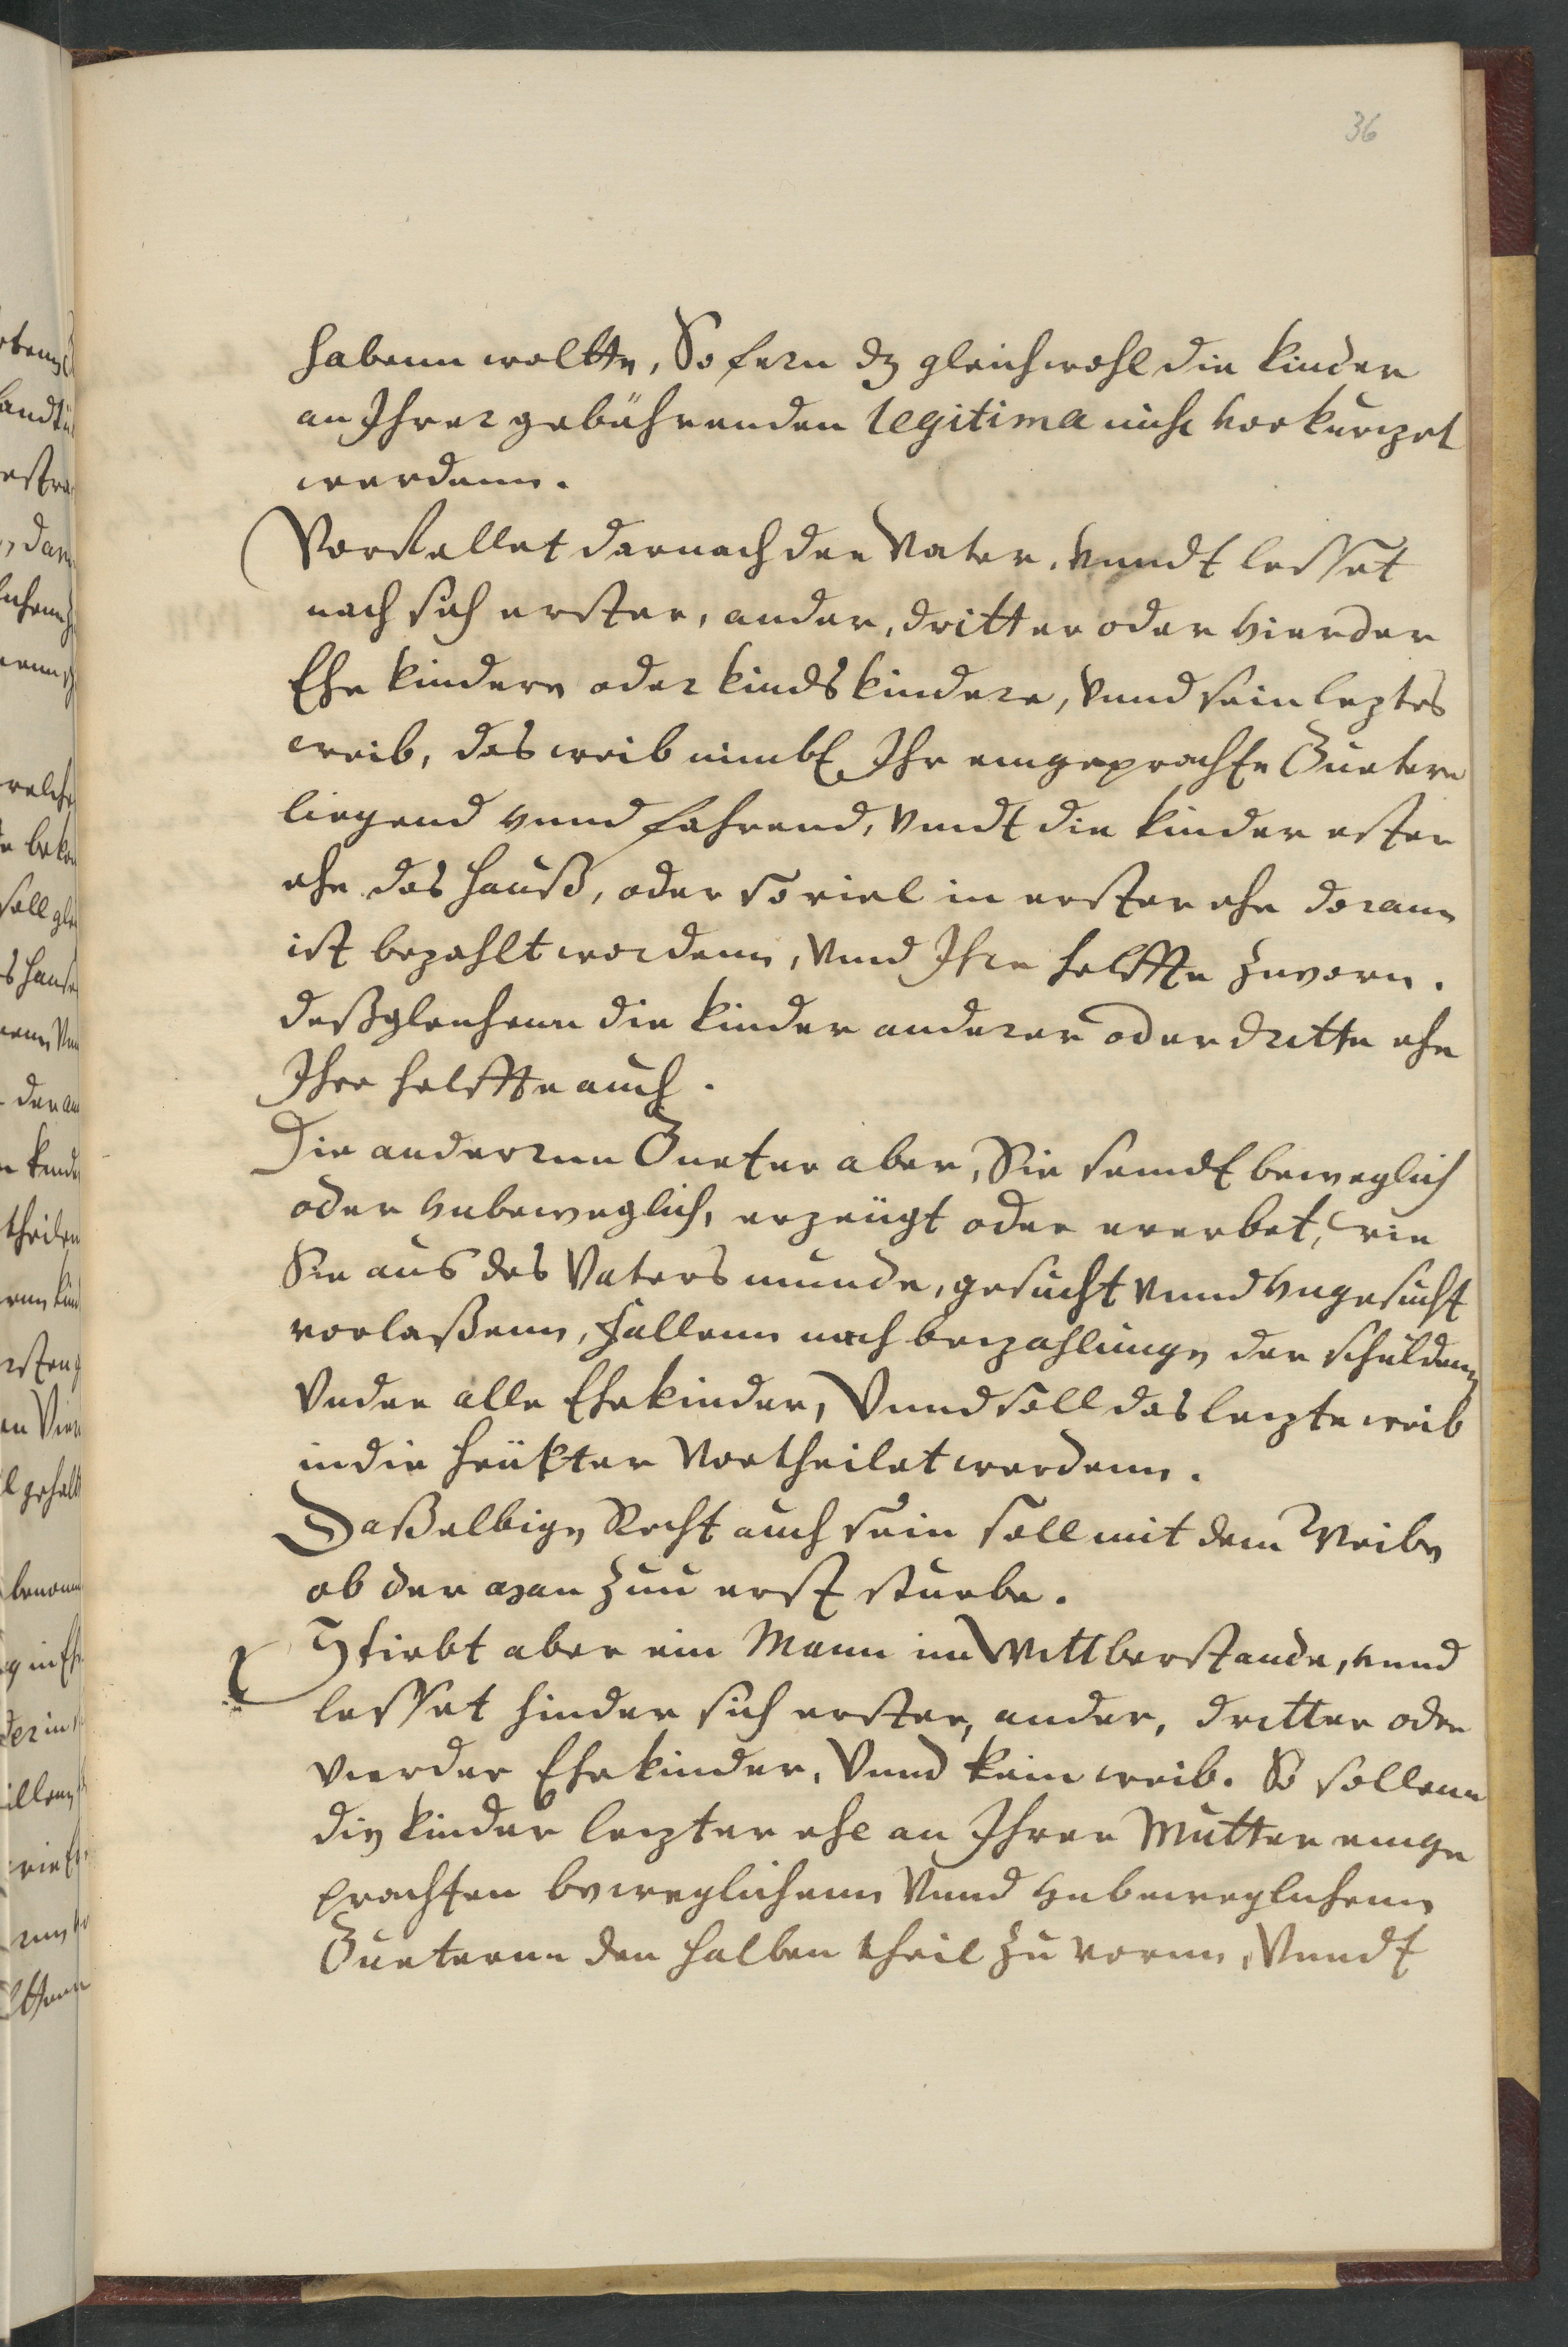 36
habenn woltte, So fern dz gleichwohl die kinder
an Ihrer gebührenden legitima nicht vorkurzet
werdenn.
Vorfellet darnach der Vater, vnndt lesset
nach sich erster, ander, dritter oder vierder
Ehe kindere oder kindskindere, vnnd sein leztes
weib, das weib nimbt Ihr eingeprachte Guetere
liegend vnnd fahrend, vnndt die kinder erster
ehe das hauß, oder so viel in erster ehe doran
ist bezahlt wordenn, vnnd Ihre helffte zuvorn.
deßgleichenn die kinder anderer oder dritte ehe
Ihre helffte auch.
Die anderenn Gueter aber, Sie seindt beweglich
oder vnbeweglich, erzeügt oder ererbet, wie
Sie aus des Vaters munde, gesucht vnnd vngesucht
vorlaßenn, fallenn nach bezahlunge der schuldenn
vnder alle Ehekinder, Vnnd soll das lezte weib
in die heüpter vortheilet werdenn.
Daßelbige Recht auch sein soll mit dem Weibe
ob der man zuu erst sturbe.
Stirbt aber ein Mann im Wittberstande, vnnd
lesset hinder sich erster, ander, dritter oder
vierder Ehekinder, Vnnd kein weib. So sollenn
die kinder lezter ehe an Ihrer Mutter einge
prachten beweglichenn Vnnd vnbeweglichenn
Gueternn den halben theil zu vornn, Vnndt